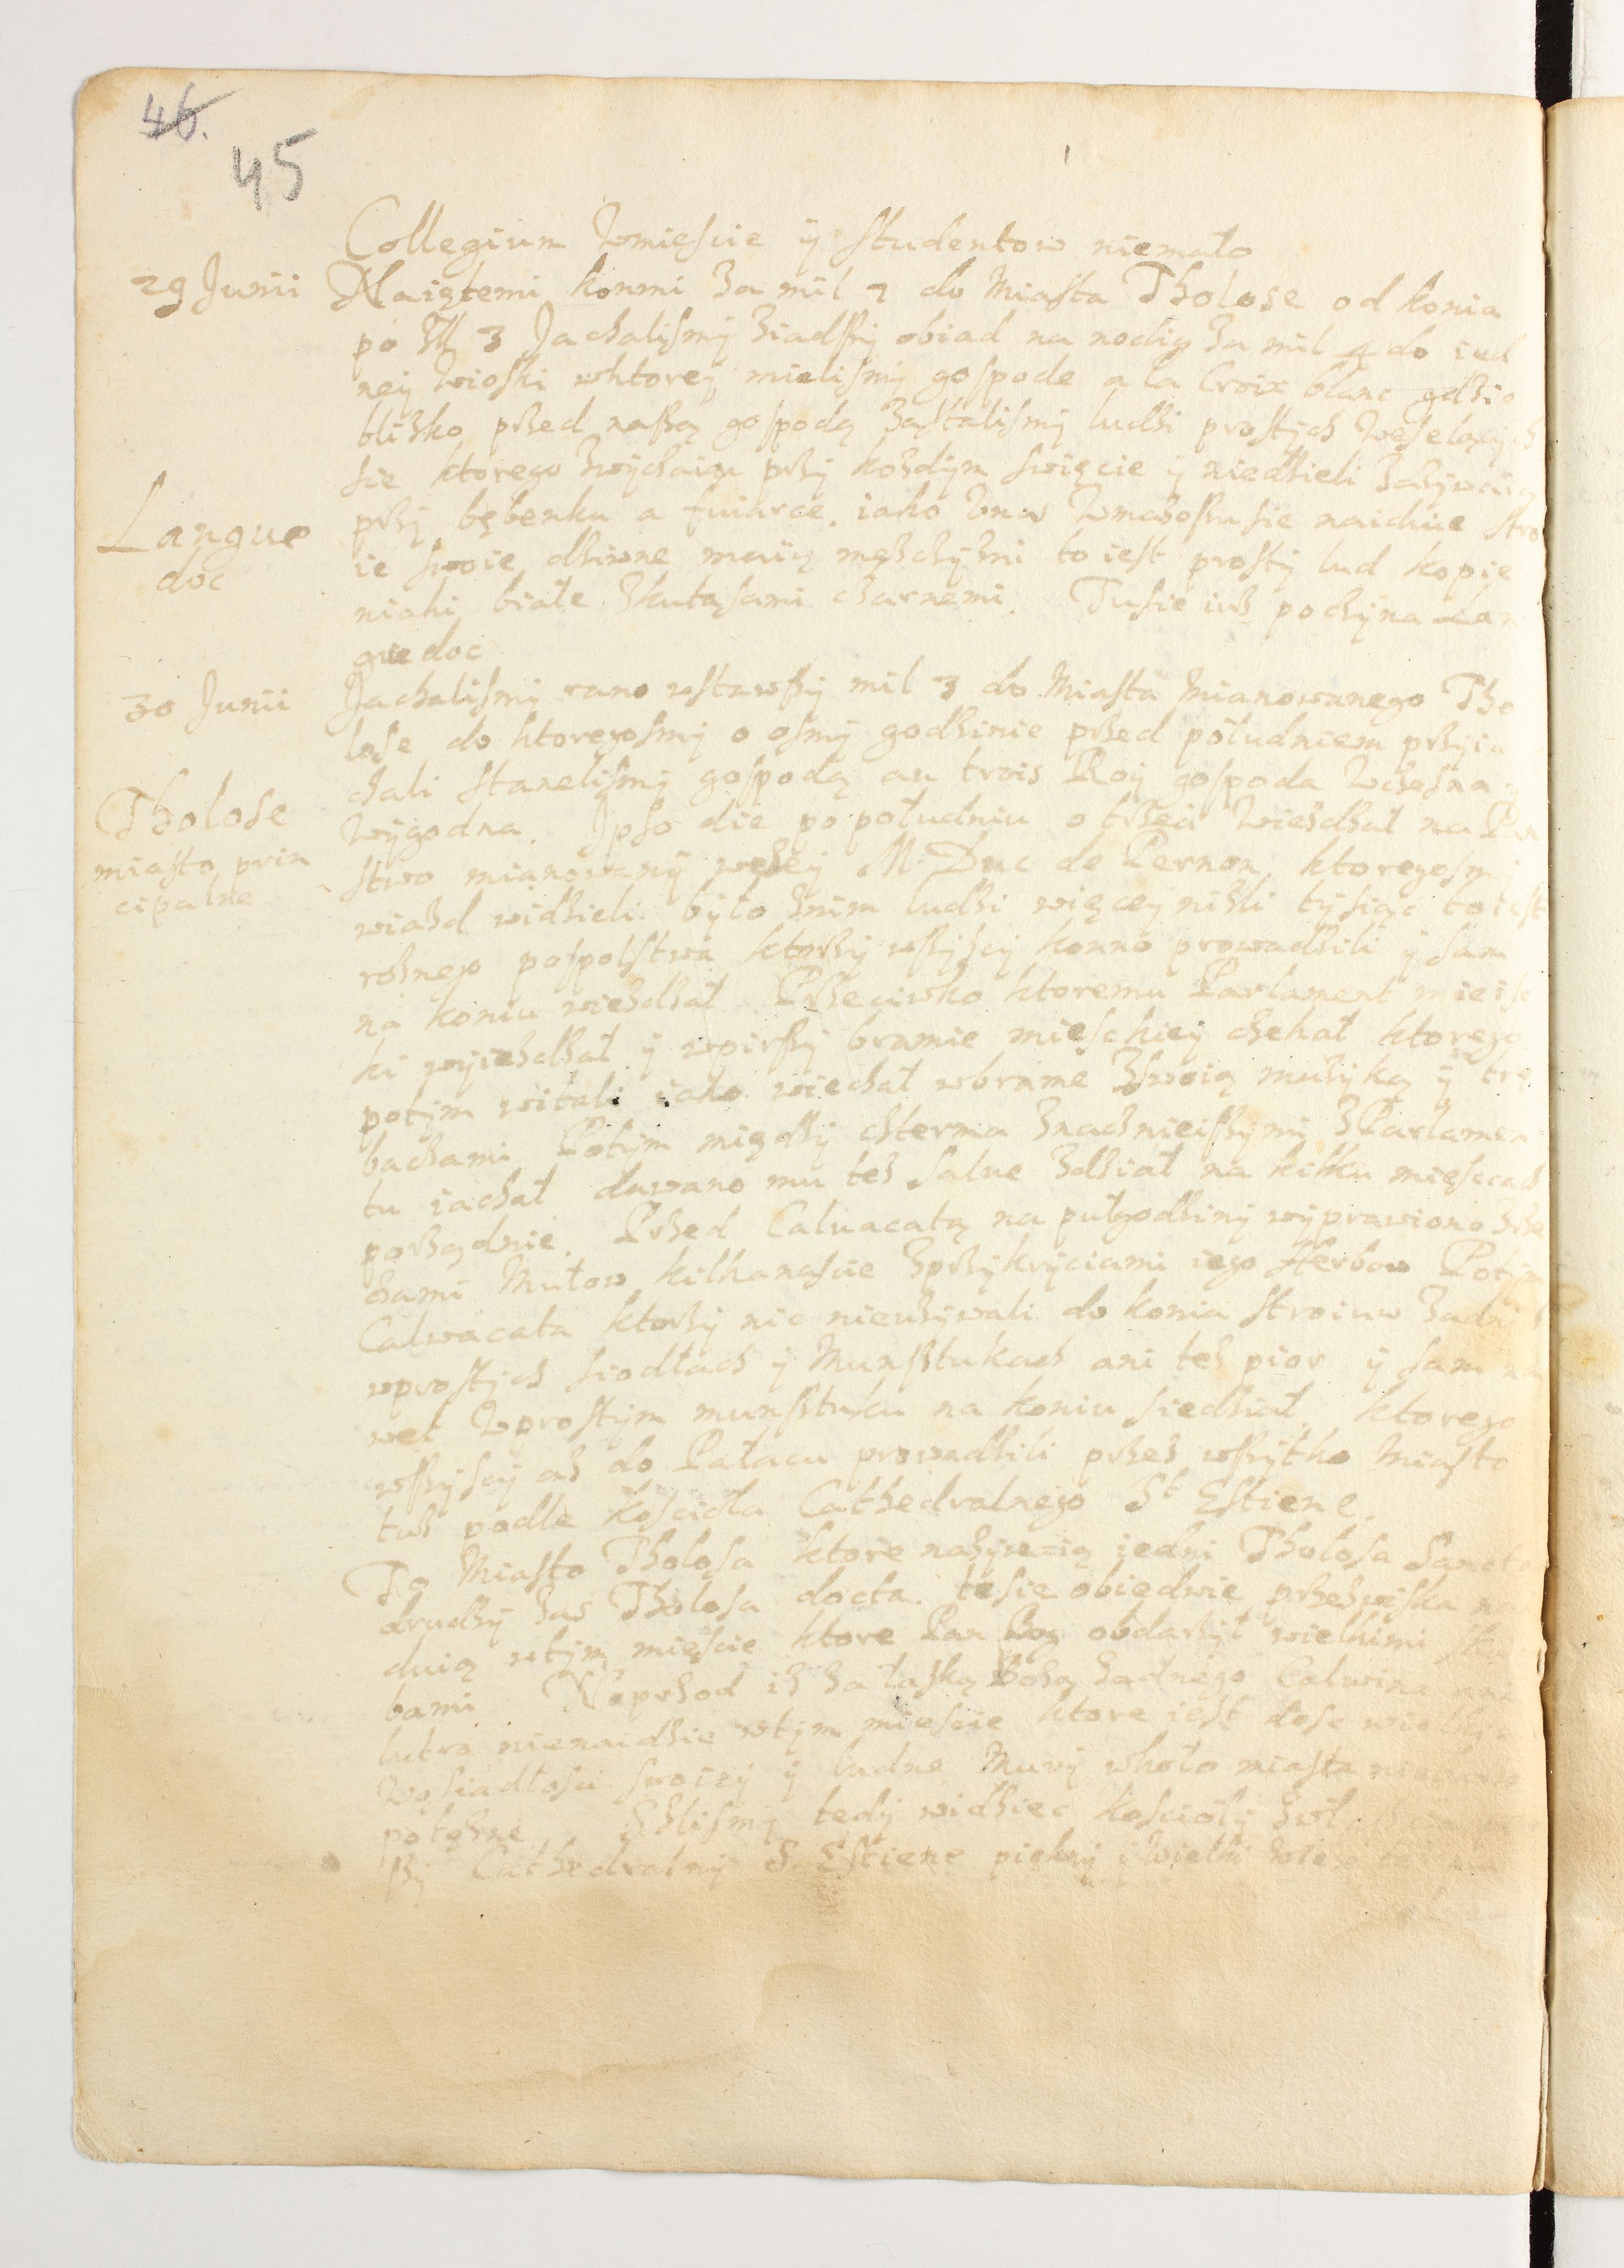 46.
45
Collegium Wmięscie ÿ studentow niemało
29 Junii
Naiętemi konmi za mil 7 do Miasta Tholose od konia
po zł 3 Jachalismÿ ziadssÿ obiad na nocliq za mil 4 do ied
neÿ Wioski wktoreÿ mielismÿ gospode a la Croix blanc gdzie
blisko przed naszą gospodą zastalismÿ ludzi prostÿch Weselącÿch
sie ktorego zwÿchaiu przÿ kozdÿm swięcie ÿ niedzieli zazÿwaią
przÿ bębenku a fuiarce. iako Unas Wmazoszu sie naiduie Stro
Langue
doc
ie swoie dziwne maią męzczÿzni to iest prostÿ lud kopie
niaki białe zkutasami czarnemi. Tusie iuz poczÿna Lan
guedoc
30 Junii
Jachalismÿ rano wstawszÿ mil 3 do Miasta Mianowanego Tho
lose do ktoregosmÿ o osmÿ godzinie przed południem przÿia
chali stanelismÿ gospodą au trois Roÿ gospoda Wczesna ÿ
Tholose
miasto prin
cipalne
Wÿgodna. Ipso die po południu o trzeci Wiezdzał na Pan
stwo mianowanÿ wÿzeÿ M. Duc de Pernon, ktoregosmÿ
wiazd widzieli. bÿło znim ludzi więceÿ nizli tÿsiąc to iest
roznego pospolstwa ktorzÿ wszÿscÿ konno prowadzili ÿ sam
na koniu wiezdzał. Przeciwko ktoremu Parlament mieisc
ki wÿiezdzał ÿ wpirszÿ bramie mieskieÿ czekał ktorego
potÿm witali iako wiechał wbrame zswoią muzÿką ÿ trę
bachami. Potÿm międzÿ czterma znacznieiszÿmi z Parlamen
tu iachał dawano mu tez salue zdział na kilku mięscach
porządnie. Przed Caluacatą na pułgodzinÿ wÿprawiono
chami Mułow kilkanascie zprzÿkrÿciami iego Herbow Potÿm
Calvacata ktorzÿ nic nieuzÿwali do konia stroiuw zadnÿch
wprostÿch siodłach ÿ Munsztukach ani tez pior ÿ sam na
wet Wprostÿm munsztuku na koniu siedział. ktorego
wszÿscÿ az do Pałacu prowadzili przez wszÿtko Miasto
tuz podle kosciola Cathedralnego St Estiene.
To Miasto Tholosa ktore nazÿwaią iedni Tholosa Sancta
drudzÿ zas Tholosa docta. tesie obiedwie przezwiska na
duią wtÿm mięscie ktore Pan Bog obdarzÿł wielkimi
bami Naprzod iz za łaską Bozą zadnego Calwina ani
lutra nienaidzie wtÿm miescie ktore iest dosc wielkie
Wosiadłosci swoieÿ ÿ ludne Murÿ wkoło miasta
potęzne. Szlismÿ tedÿ widziec kosciolÿ
szÿ Cathedralnÿ S. Estiene pięknÿ ÿ Wielki